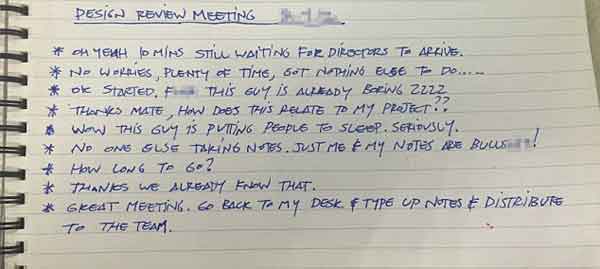 DESIGN REVIEW MEETING
* OH YEAH 10 MINS STILL WAITING FOR DIRECTORS TO ARRIVE.
* NO WORRIES, PLENTY OF TIME, GOT NOTHING ELSE TO DO.....
* OK STARTED. F THIS GUY IS ALREADY BORING ZZZZ
* THANKS MATE, HOW DOES THIS RELATE TO MY PROJECT??
* WOW THIS GUY IS PUTTING PEOPLE TO SLEEP. SERIOUSLY.
* NO ONE ELSE TAKING NOTES. JUST ME & MY NOTES ARE BULLS!
* HOW LONG TO GO?
* THANKS WE ALREADY KNOW THAT.
* GREAT MEETING. GO BACK TO MY DESK & TYPE UP NOTES & DISTRIBUTE
TO THE TEAM.